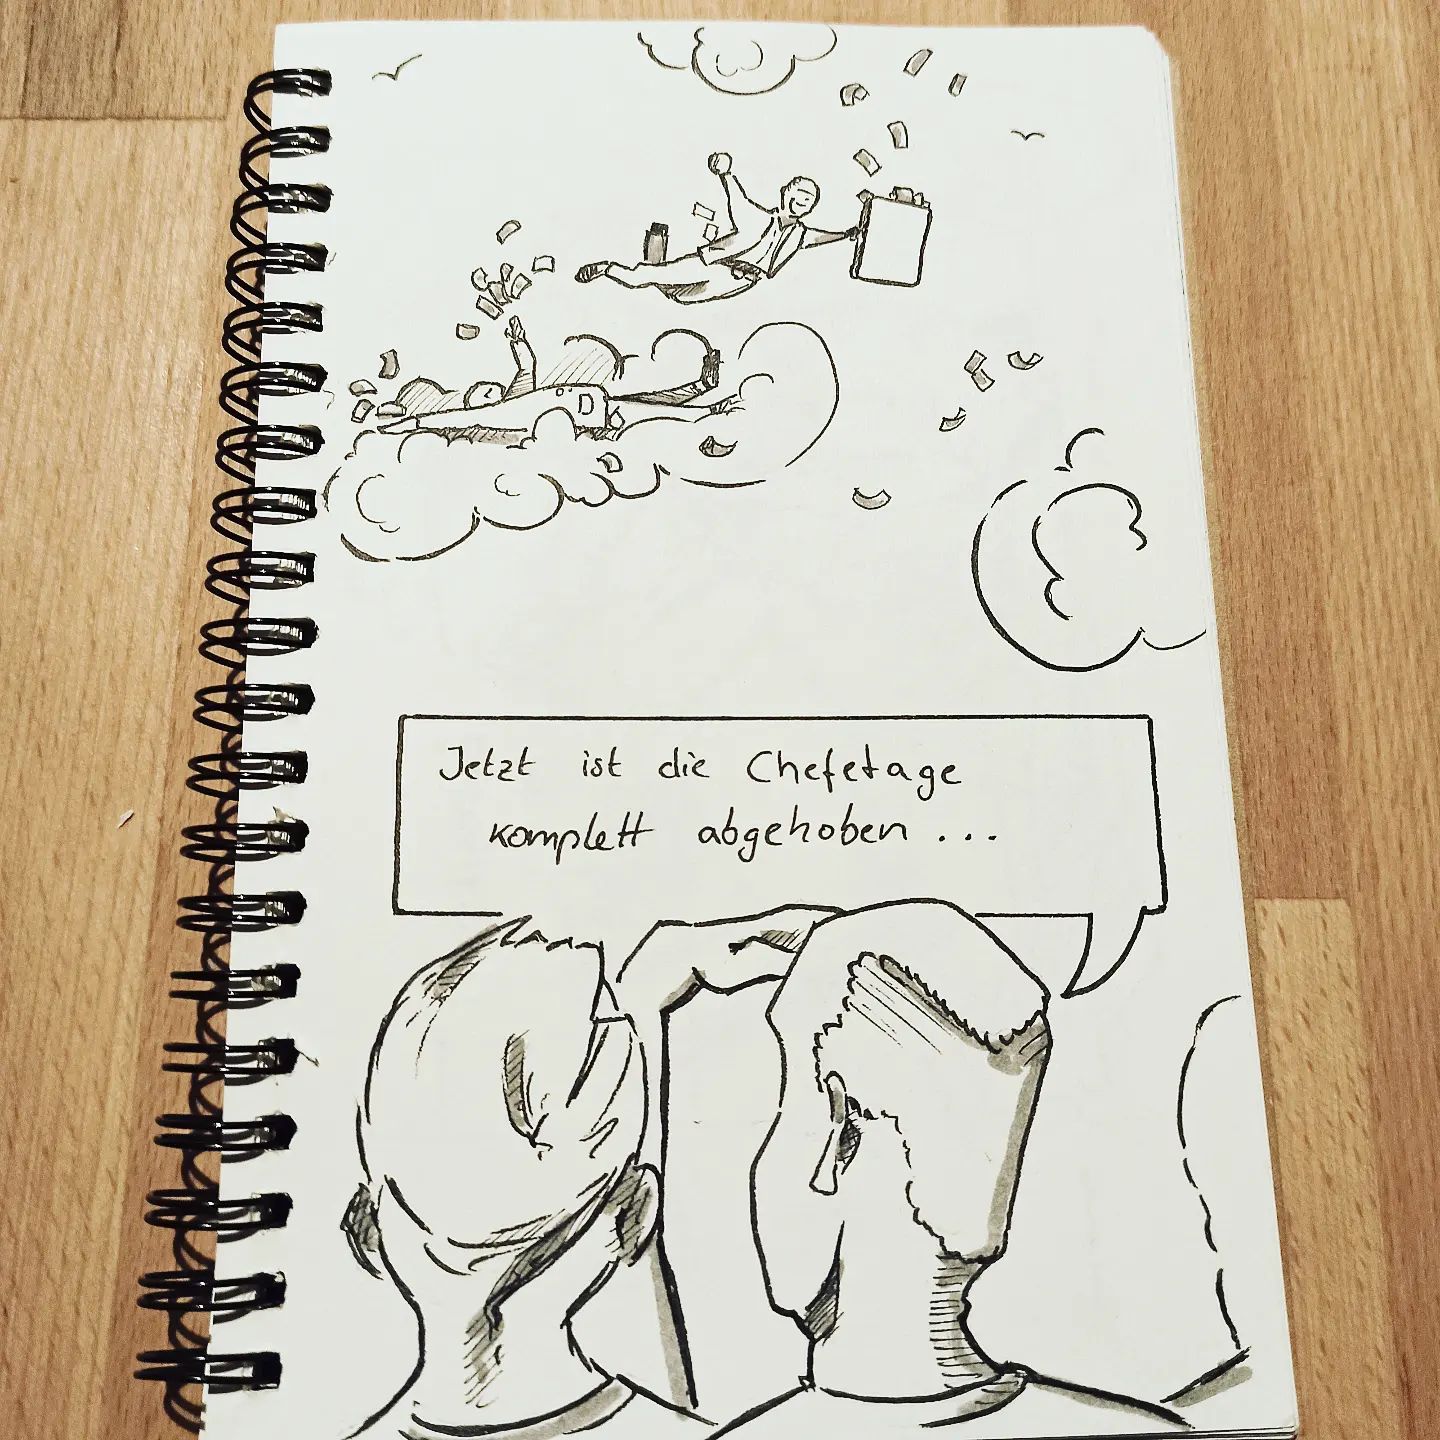 Jetzt ist die Chefetage
komplett abgehoben...